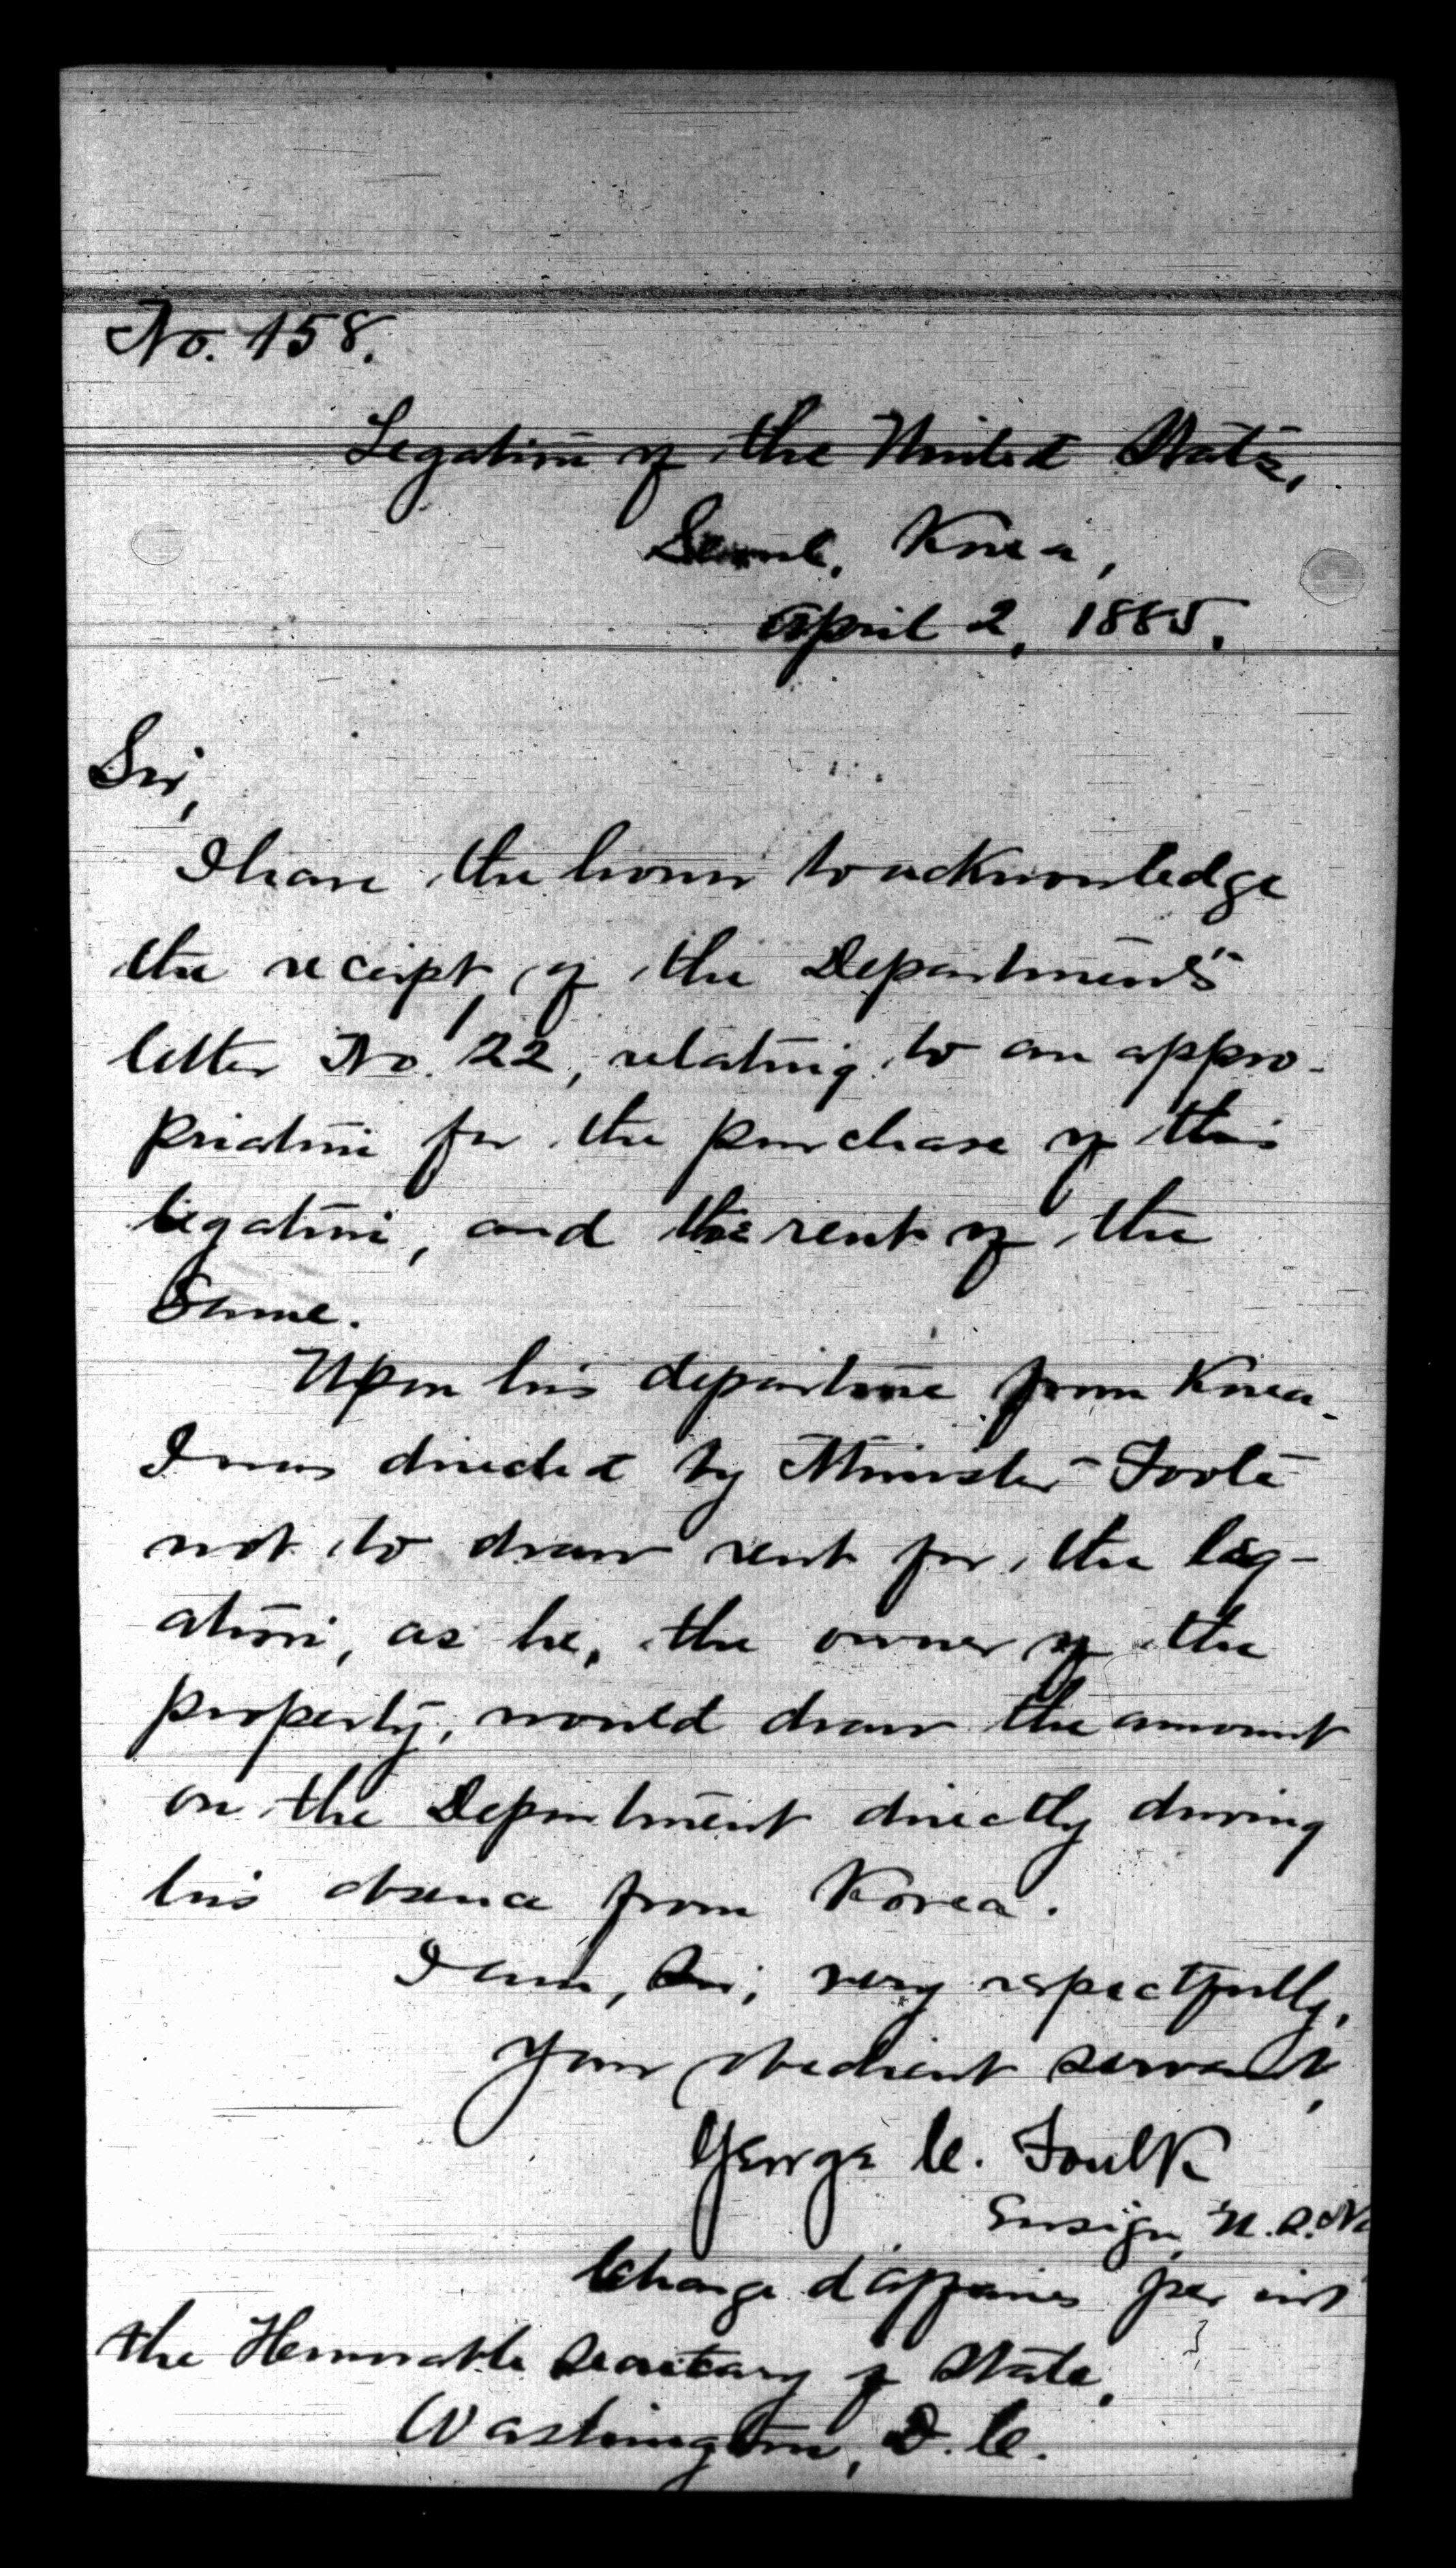 No. 158.
Legation of the United States,
Seoul, Korea,
April 2, 1885.
Sir,
I have the honor to acknowledge
the receipt, of the Department's
letter No. 22, relating to an appro-
priation for the purchase of this
legation, and the rent of the
Same.
Upon his departure from Korea
I was directed by Minister Foote
not to draw rent for the leg-
ation, as he, the owner of the
property, would draw the amount
on the Department directly during
his absence from Korea.
I am, Sir, very respectfully,
Your obedient servant,
George C. Foulk
Ensign, U.S.N
Charge d'affaires per int
the Honorable Secretary of State,
Washington, D.C.